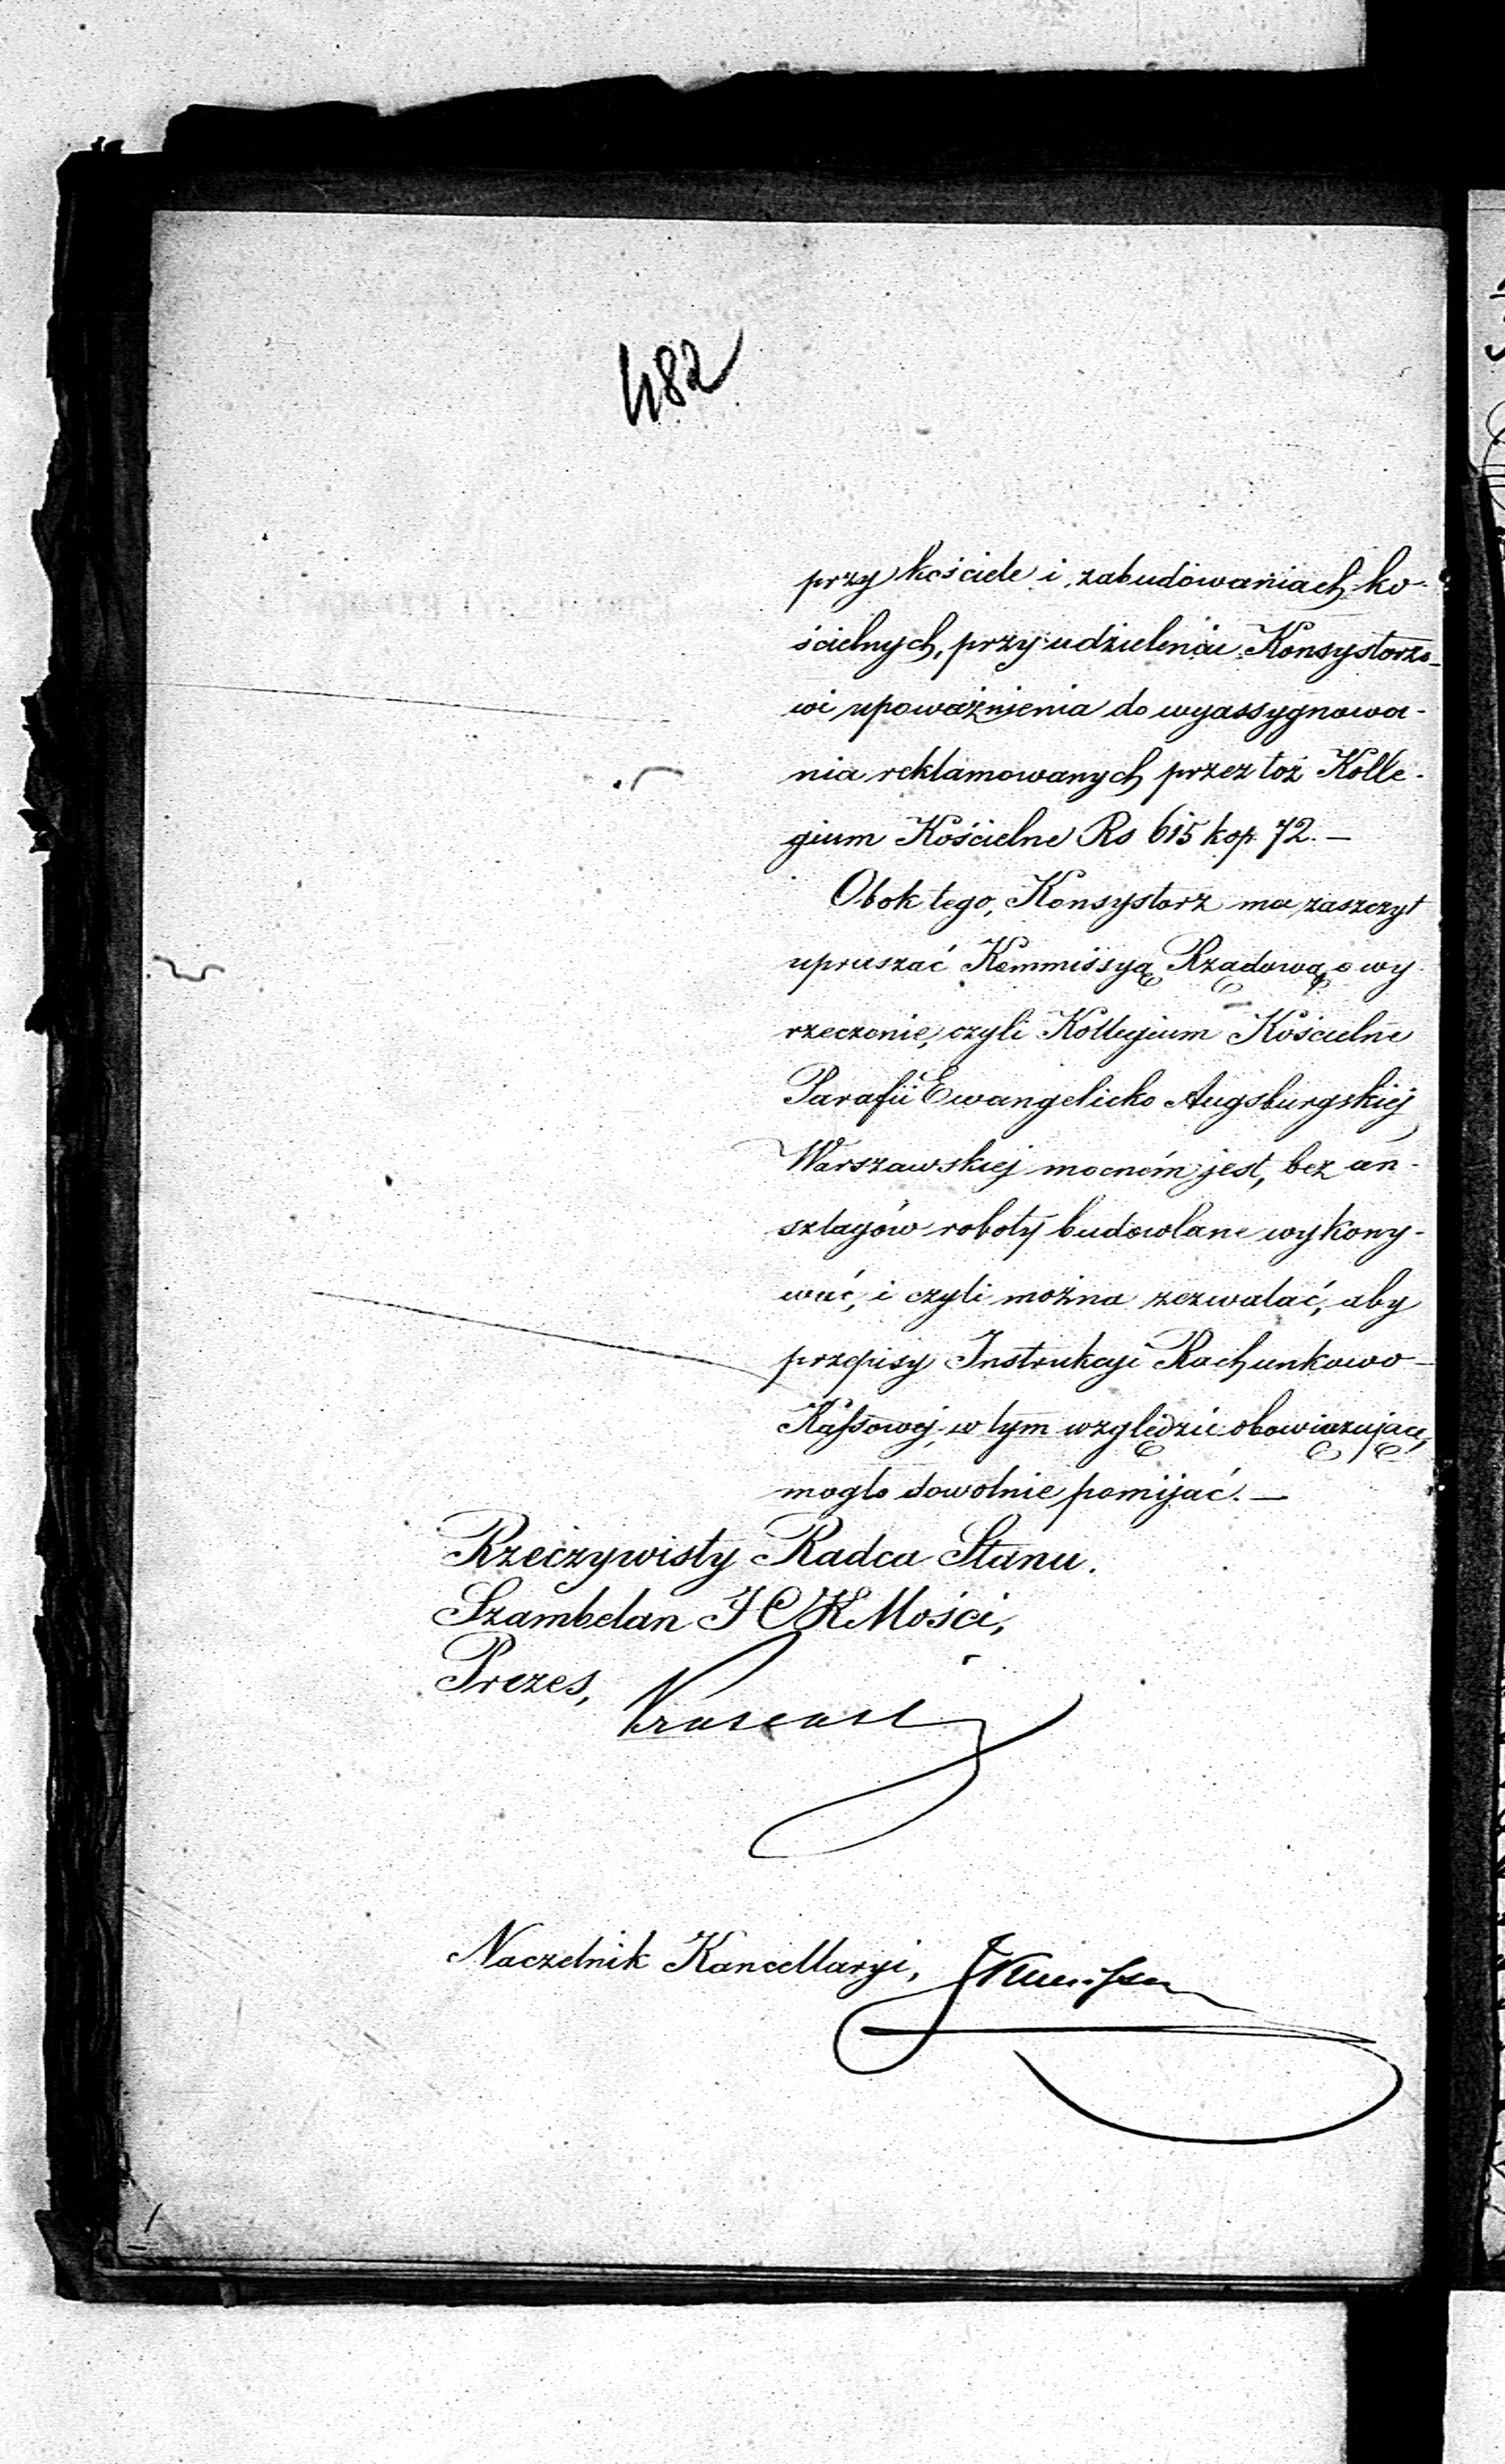 482
przy kościele i zabudowaniach ko-
ścielnych, przy udzieleniu Konsystorzo-
wi upoważnienia do wyassygnowa-
nia reklamowanych przez toż Kolle-
gium Kościelne Rs 615 kop. 72. —
Obok tego, Konsystorz ma zaszczyt
upraszać Kommissyą Rządową o wy
rzeczenie, czyli Kollegium Kościelne
Parafii Ewangelicko Augsburgskiej
Warszawskiej mocném jest, bez an-
szlagów roboty budowlane wykony-
wać, i czyli można zezwalać, aby
przepisy Instrukcyi Rachunkowo-
Kassowej, w tym względzie obowiązujące,
mogło dowolnie pomijać. —
Rzeczywisty Radca Stanu.
Szambelan J C K Mości,
Prezes,
Naczelnik Kancellaryi,